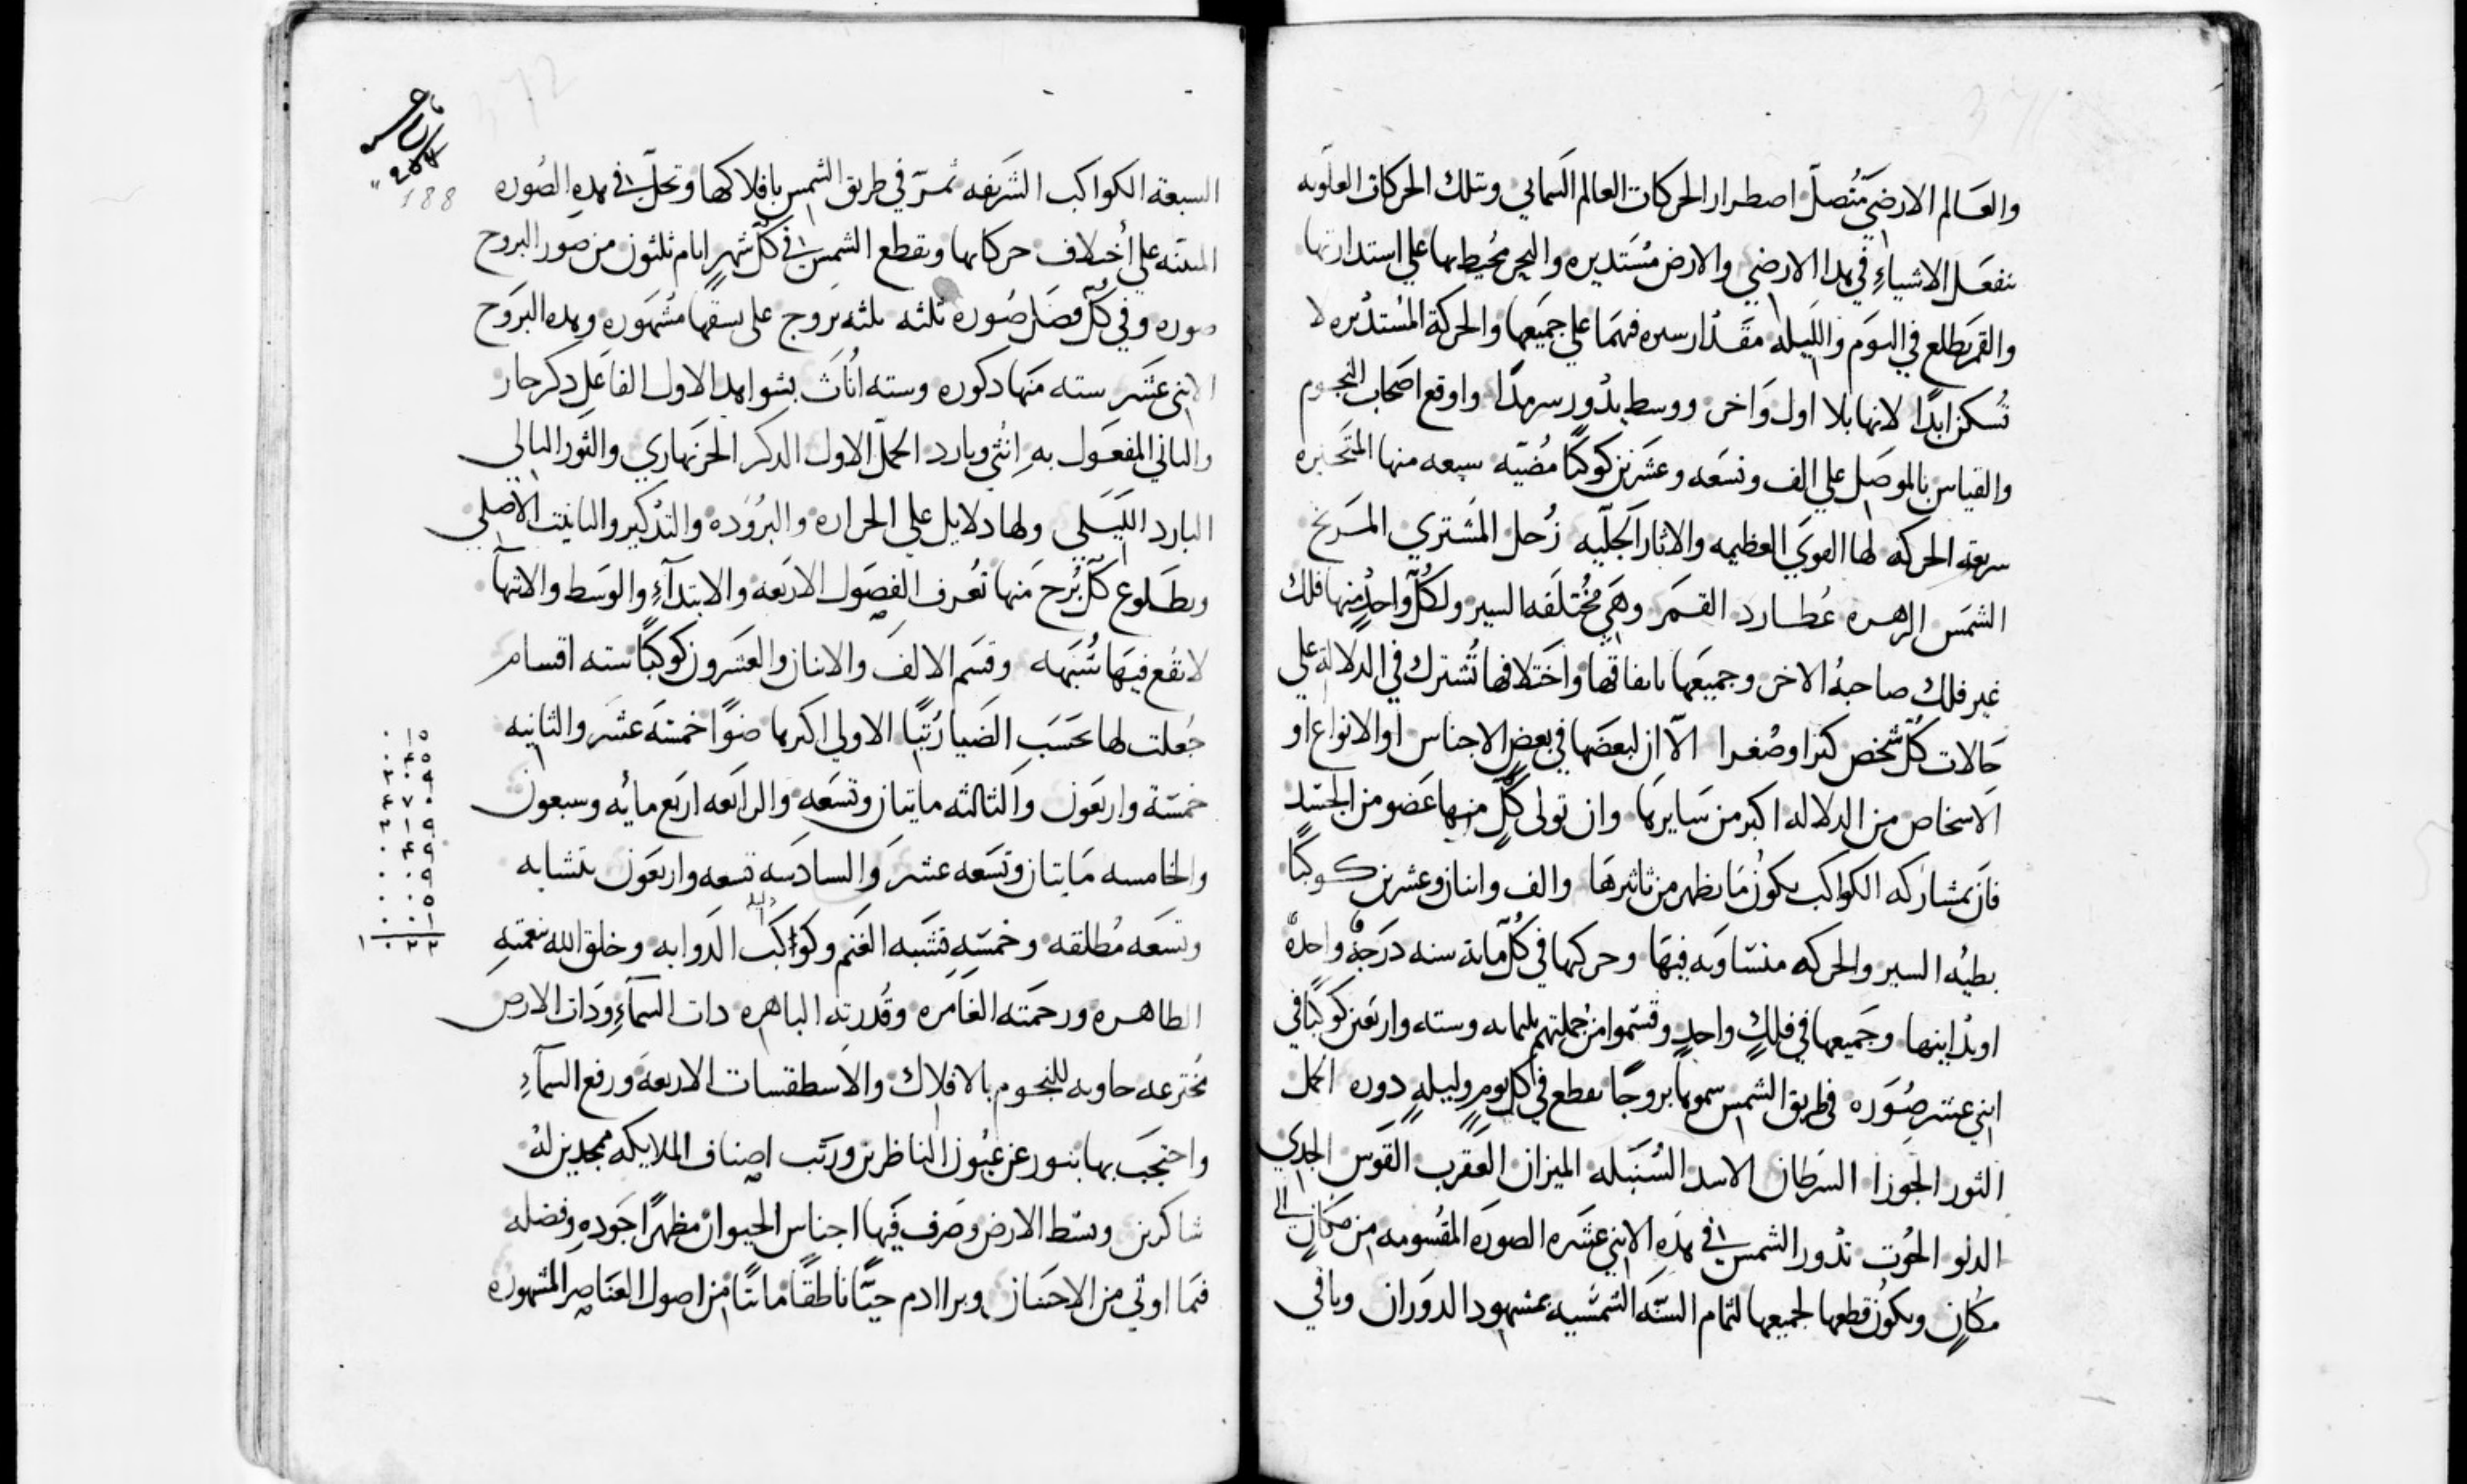 والعالم الارضي متصل اصطرار الحركات العالم السمايى وبتلك الحركات العلويه
تنفعل الاشياء في هدا الارضي والارض مستديره والبحر محيط بها علي استدارتها
والقمر يطلع في اليوم والليله مقدار سيره فهما علي جميعها والحركة المستديره لا
تسكن ابدًا لانها بلا اول واخر ووسط بدور سرمدًا واوقع اصحاب النجوم
والقياس بالموصل علي الف وتسعه وعشرين كوكبًا مضيه سبعه منها المتحيره
سريعة الحركه لها القوي العظيمه والاثار الجليه زحل المشتري المريخ
الشمس الزهره عطارد القمر وهي مختلفه السير ولكل واحدٍ منها فلك
غير فلك صاحبه الاخر وجميعها باتفاقها واختلافها تشترك في الدلالة علي
حالات كل شخص كبر او صغر الا ان لبعضها في بعض الاجناس او الانواع او
الاشخاص من الدلاله اكبر من سايرها وان تولى كل منها عضو من الجسد
فان بمشاركه الكواكب يكون ما يظهر من تاثيرها والف واثنان وعشرين كوكبًا
بطيه السير والحركه متساويه فيها وحركتها في كل ماية سنه درجة واحدة
او يدانيها وجميعها في فلكٍ واحدٍ وقسموا من جملتهم ثلثمايه وسته واربعين كوكبًا في
اثني عشر صوره في طريق الشمس سموها بروجًا تقطع في كل يومٍ وليلهٍ دوره الحمل
الثور الجوزا السرطان الاسد السنبله الميزان العقرب القوس الجدي
الدلو الحوت تدور الشمس في هذه الاثني عشره الصوره المقسومه من مكانٍ الى
مكانٍ ويكون قطعها لجميعها لتمام السنه الشمسيه بمشهود الدوران وباقي
288
188
السبعة الكواكب الشريفه تمر في طريق الشمس بافلاكها وتحل في هده الصوره
علي اختلاف حركاتها وتقطع الشمس في كل شهرٍ ايام ثلثون من صور البروج
صوره وفي كل فصل صوره ثلثه ثلثه بروج على نسقها مشهوره وهده البروج
الاثنى عشر سته منها دكوره وسته اناث بشواهد الاول الفاعل دكر حار
والثاني المفعول به انثي وبارد الحمل الاول الدكر الحر نهاري والثور التالي
البارد الليلي ولها دلايل علي الحراره والبروده والتدكير والتانيت الاصلي
وبطلوع كل برج منها تعرف الفصول الاربعه والابتدآء والوسط والانتهآ
لا تقع فيها شبهه وقسم الالف والاثنان والعشرون كوكبًا سته اقسام
جعلت لها بحسب الضيا رتبًا الاولي اكبرها ضوًا خمسه عشر والثانيه
خمسة واربعون والثالثه مايتان وتسعه والرابعه اربع مايه وسبعون
والخامسه مايتان وتسعه عشر والسادسه تسعه واربعون تتشابه
وتسعه مطلقه وخمسه تشبه الغنم وكواكب الدوابه وخلق الله بنعمته
الطاهره ورحمته الغامره وقدرته الباهره دات السمآء ودات الارض
مخترعه حاويه للنجوم بالافلاك والاسطقسات الاربعه ورفع السمآء
واحتجب بها بنور عن عيون الناظرين ورتب اصناف الملايكه ممجدين له
شاكرين وبسط الارض وصرف فيها اجناس الحيوان مظهرًا جوده وفضله
فما اوتي من الاحسان وبرا ادم حيًّا ناطقًا مائتًا من اصول العناصر المشهوره
٠١٥
٠٤٥
٢٠٩
٤٧٠
٢١٩
٠٤٩
٠٠٩
٠٠٥
٠٠١
١٠٢٢